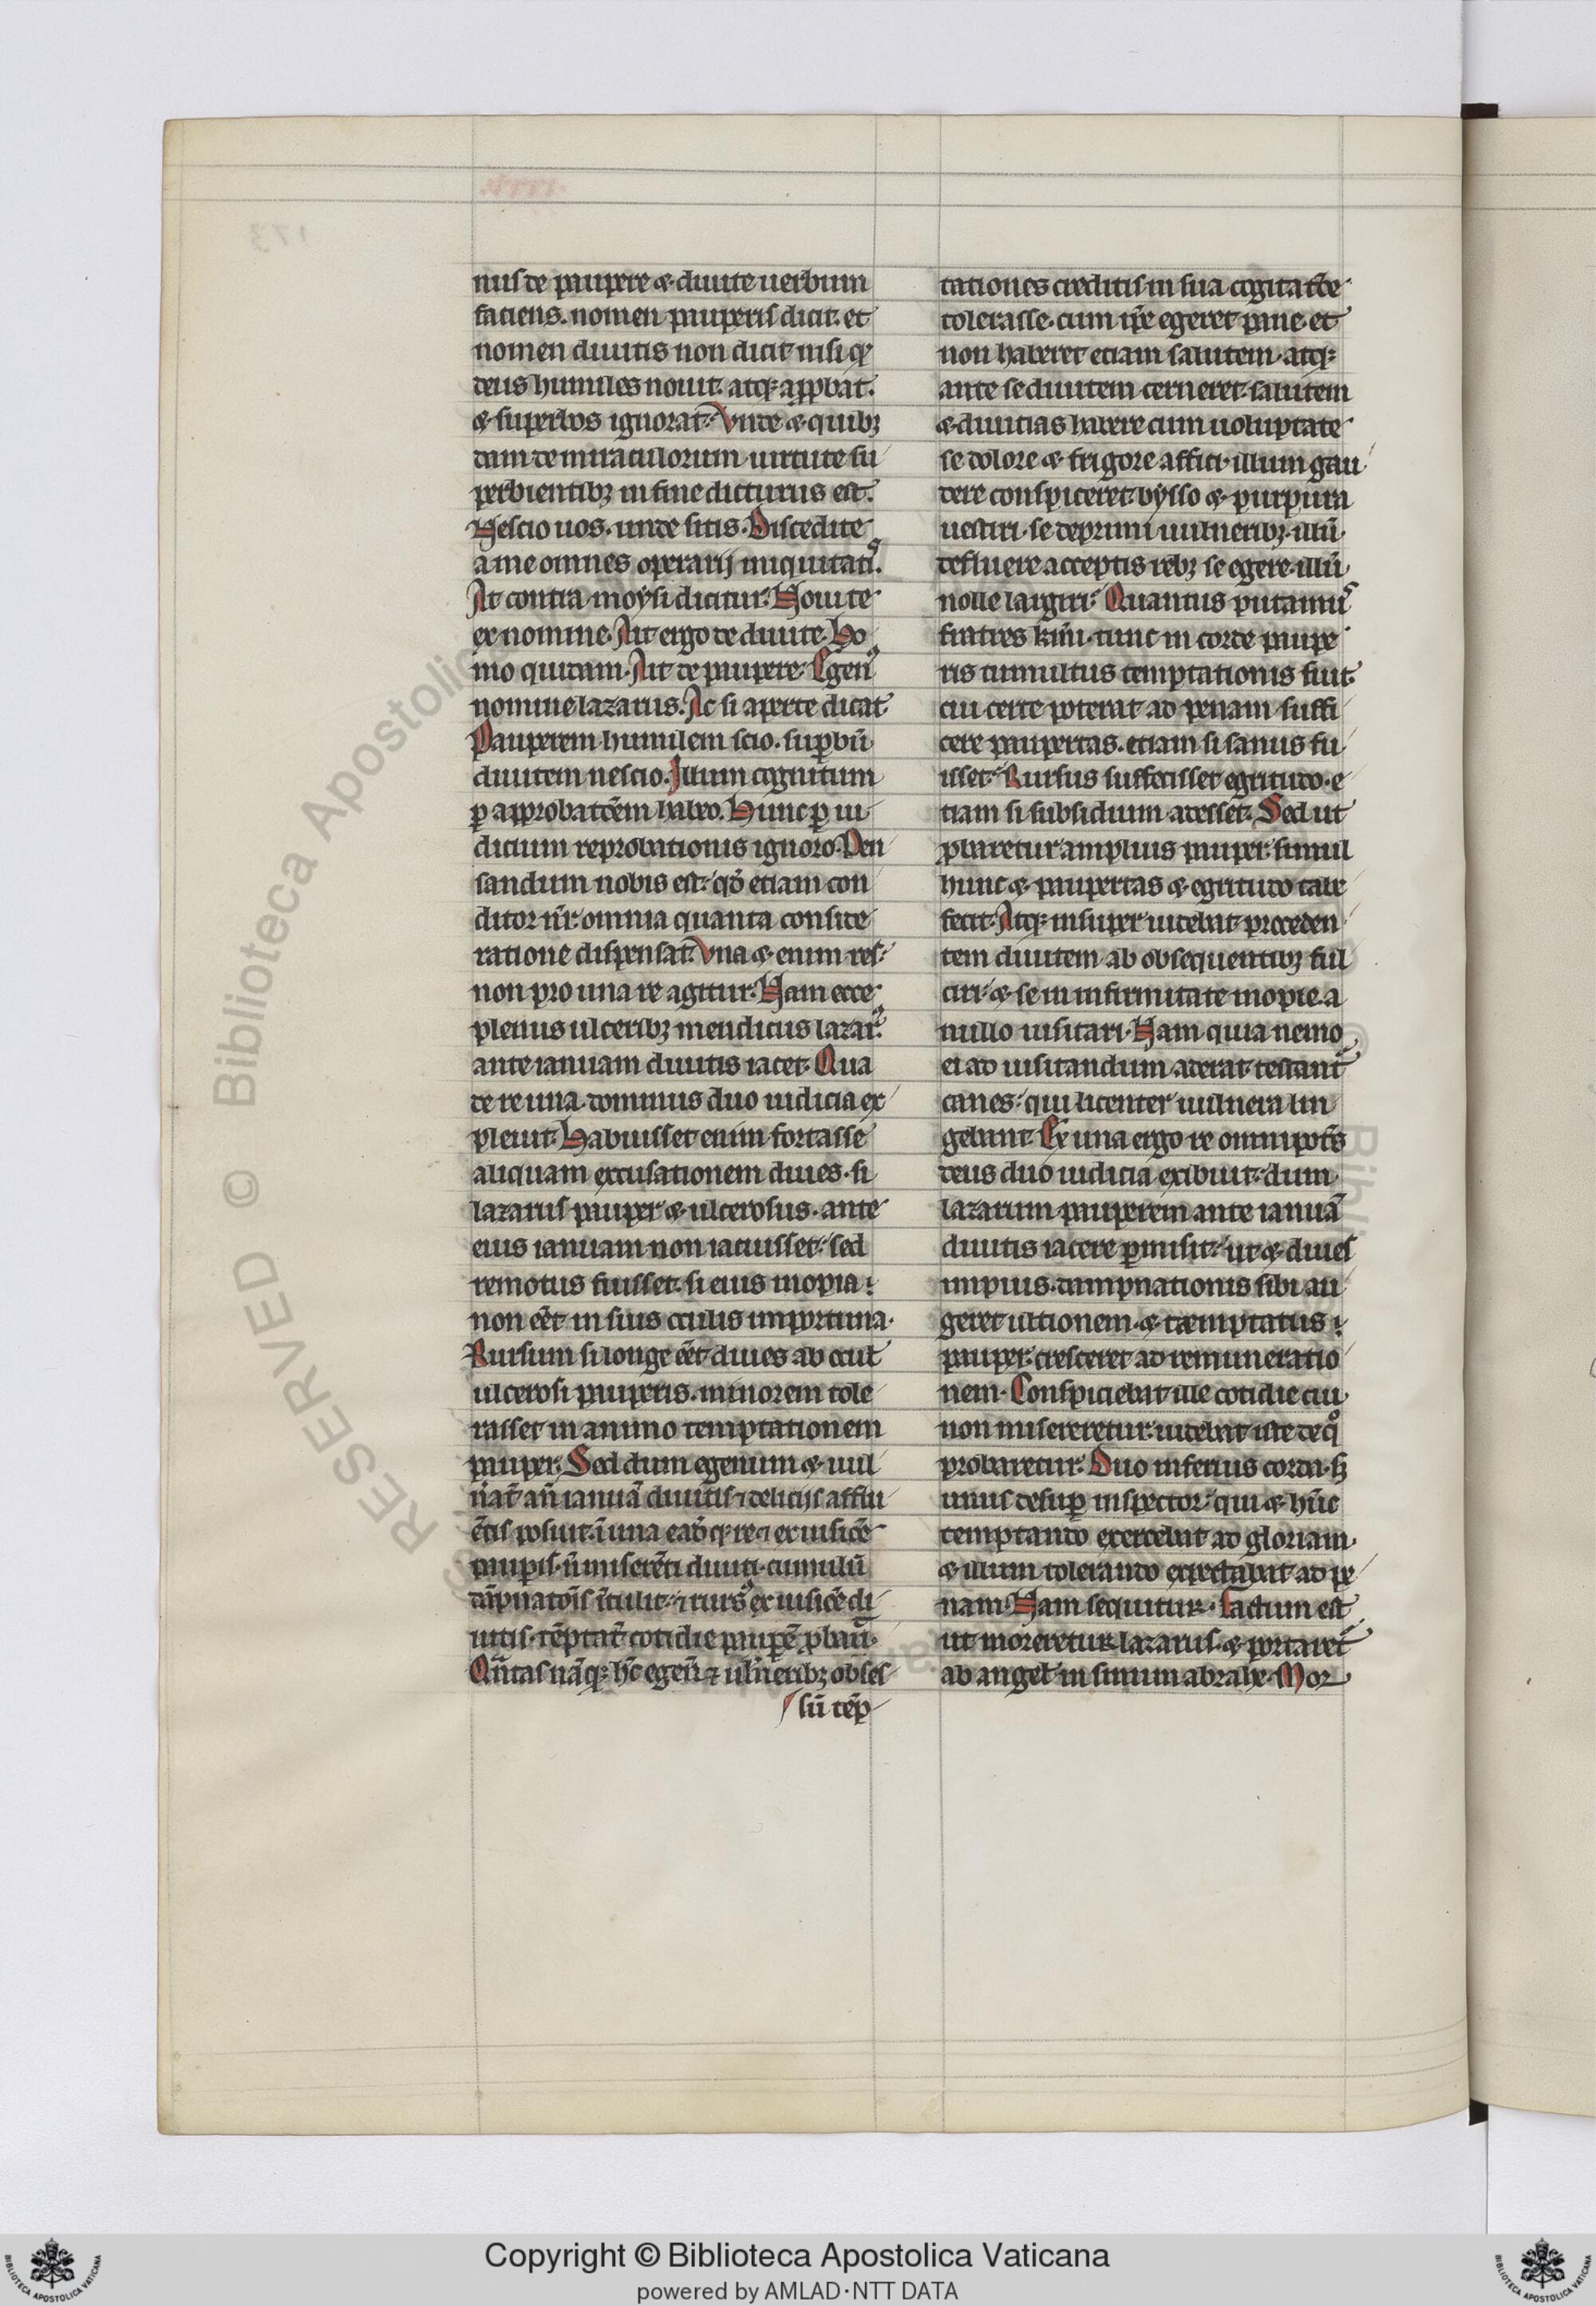 nus de paupere & diuite uerbum
faciens. nomen pauperis dicit. et
nomen diuitis non dicit nisi qͥ
deus humiles nouit. atqꝫ appbat.
& superbos ignorat. Vnde & quibꝫ
dam de miraculorum uirtute su
perbientibꝫ in fine dicturus est.
Nescio uos. unde sitis. Discedite
a me omnes operarij iniquitatis.
At contra moysi dicitur. Noui te
ex nomine. Ait ergo de diuite. Ho
mo quidam. Ait de paupere. Egenꝰ
nomine lazarus. Ac si aperte dicat
Pauperem humilem scio. suꝑbū
diuitem nescio. Illum cognitum
ꝑ approbatōem habeo. Hunc ꝑ iu
dicium reprobationis ignoro. Pen
sandum nobis est. qđ etiam con
ditor nr̄ omnia quanta conside
ratione dispensat. Vna & enim res
non pro una re agitur. Nam ecce
plenus ulceribꝫ mendicus lazarꝰ
ante ianuam diuitis iacet. Qua
de re una dominus duo iudicia ex
pleuit. Habuisset enim fortasse
aliquam excusationem diues. si
lazarus pauper & ulcerosus. ante
eius ianuam non iacuisset. sed
remotus fuisset. si eius inopia
non eēt in suis oculis importuna.
Rursum si longe eēt diues ab ocul
ulcerosi pauperis. minorem tole
rasset in animo temptationem
pauper. Sed dum egenum & uul
n̄at̄ an̄ ianuā diuitis ⁊ delicijs afflu
ētis posuit. ī una eadq; re ⁊ ex uisiōe
paupis. n̄ miserēti diuiti. cumulū
dāpnatōis ītulit. ⁊ rursꝰ ex uisiōe di
uitis. tēptat̄ cotidie paupē ꝓbauit.
Qn̄tas nāqꝫ hc̄ egenū ⁊ uln̄eribꝫ obses
sū tēp
tationes creditis in sua cogitatōe
tolerasse. cum ip̄e egeret pane. et
non haberet etiam salutem. atqꝫ
ante se diuitem cerneret. salutem
& diuitias habere cum uoluptate
se dolore & frigore affici. illum gau
dere conspiceret. bysso & purpura
uestiri. se deprimi uulneribꝫ. illū
defluere acceptis rebꝫ se egere. illū
nolle largiri. Quantus putamus
fratres kr̄mi. tunc in corde paupe
ris tumultus temptationis fuit.
cui certe poterat ad penam suffi
cere paupertas. etiam si sanus fu
isset. Rursus suffecisset egritudo. e
tiam si subsidium adesset. Sed ut
ꝓbaretur amplius pauper. simul
hunc & paupertas & egritudo tabe
fecit. Atqꝫ insuper uidebat proceden
tem diuitem ab obsequentibꝫ ful
ciri. & se in infirmitate inopie. a
nullo uisitari. Nam quia nemo
ei ad uisitandum aderat. testant͛
canes. qui licenter uulnera lin
gebant. Ex una ergo re omnipotēs
deus duo iudicia exibuit. dum
lazarum pauperem ante ianuā
diuitis iacere ꝑmisit. ut & diues
impius. dampnationis sibi au
geret ultionem. & tæmptatus
pauper. cresceret ad remuneratio
nem. Conspiciebat ille cotidie cui
non misereretur. uidebat iste de qͦ
probaretur. Duo inferius corda. sꝫ
unus desuꝑ inspector. qui & hūc
temptando exercebat ad gloriam.
& illum tolerando expectabat ad pe
nam. Nam sequitur. Factum est
ut moreretur lazarus. & portaret͛
ab angel̄ in sinum abrahe. Mor
Copyright © Biblioteca Apostolica Vaticana
powered by AMLAD·NTT DATA